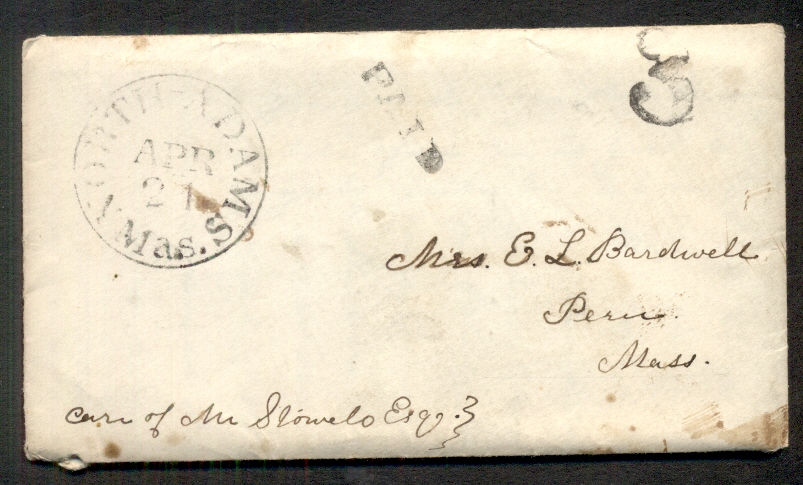 NORTH-ADAMS
APR
21
Mas.
PAID
3
Mrs. E. L. Bardwell
Peru.
Mass.
care of Mr Stowell Esq.